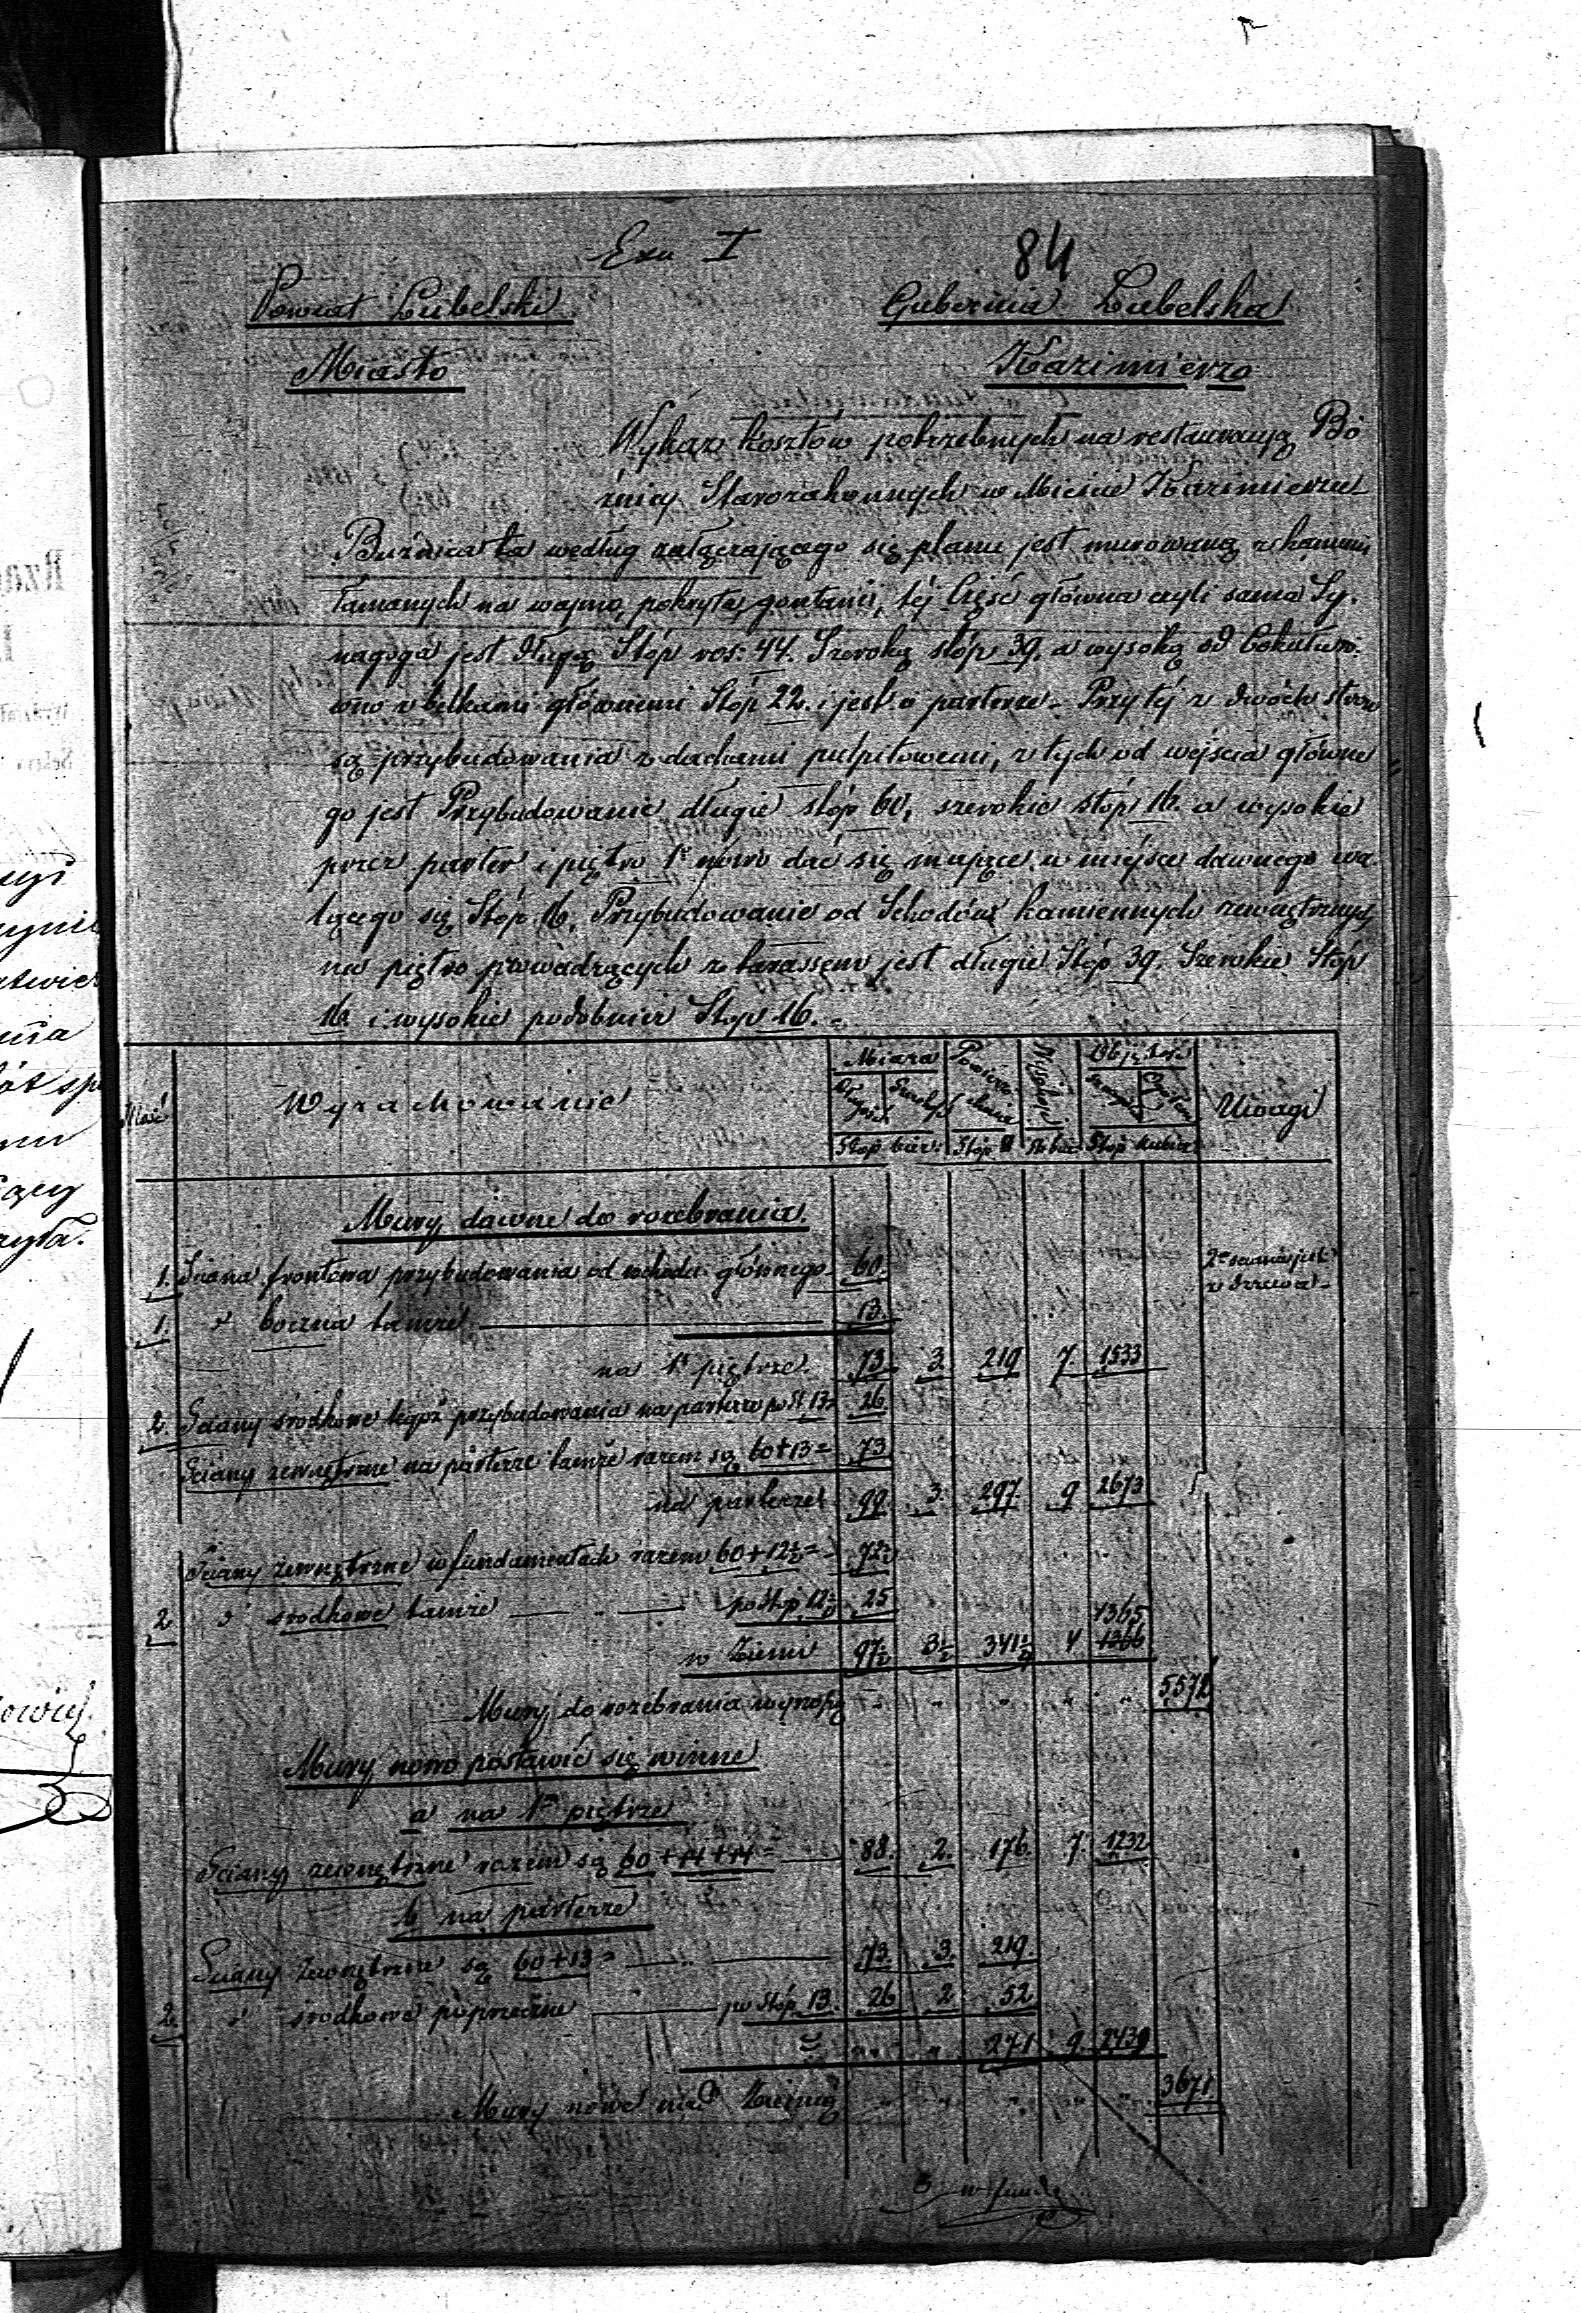 Exu I
84
Powiat Lubelski Gubernia Lubelska
Miasto Kazimierz
Wykaz kosztów potrzebnych na restauracyą Bó
żnicy Starozakonnych w Mieście Kazimierzu
Bużnica ta według załączającego się planu jest murowaną z kamieni
łamanych na wapno, pokryta gontami, tej Część główna czyli sama Sy-
nagoga jest długą Stóp ros: 44. Szeroką stóp 39. a wysoką od
wno z belkami głównemi Stóp 22. i jest o parterze. Przy tej z dwóch stron
są przybudowania z dachami pulpitowemi, z tych od wejścia główne
go jest Przybudowanie długie stóp 60, szerokie stóp 16. a wysokie
przez parter i piętro 1e nowo dać się mające w miejsce dawnego wa-
lącego się Stóp 16. Przybudowanie od Schodów kamiennych zewnętrznych
na piętro prowadzących z tarassem jest długie Stóp 39. Szerokie Stóp
16. i wysokie podobnież Stóp 16.
Ilość Wyrachowanie Miara Powierz- chnia Wysokość Objętość Uwagi
Długość Szerok: Szczegół: Ogólna
Stóp bież: Stóp □ St. bież Stóp kubicz:
Mury dawne do rozebrania
1. Sciana frontowa przybudowania od wchodu głównego 60. 2a sama jest
z drzewa
1. " boczna tamże 13.
na 1m piętrze 73. 3. 219 7. 1533
2. Sciany środkowe tegoż przybudowania na parterze po St 13= 26.
Sciany zewnętrzne na parterze tamże razem są 60+13= 73
na parterze 99. 3. 297. 9 2673
Sciany zewnętrzne w fundamentach razem 60+12½= 72½
2 " środkowe tamże po Stóp 12½ 25
1365
w Ziemi 97½ 3½ 341½ 4 1366
Mury do rozebrania wynoszą " " " " " 5572
Mury nowo postawić się winne
a na 1m piętrze
Sciany zewnętrzne razem są 60+14+14= 88. 2. 176. 7. 1232
b na parterze
Sciany Zewnętrzne są 60+13= 73. 3. 219.
2. " środkowe poprzeczne po Stóp 13. 26 2 52
= " " 271. 9. 2439
Mury nowe nad Ziemią " " " " " 3671